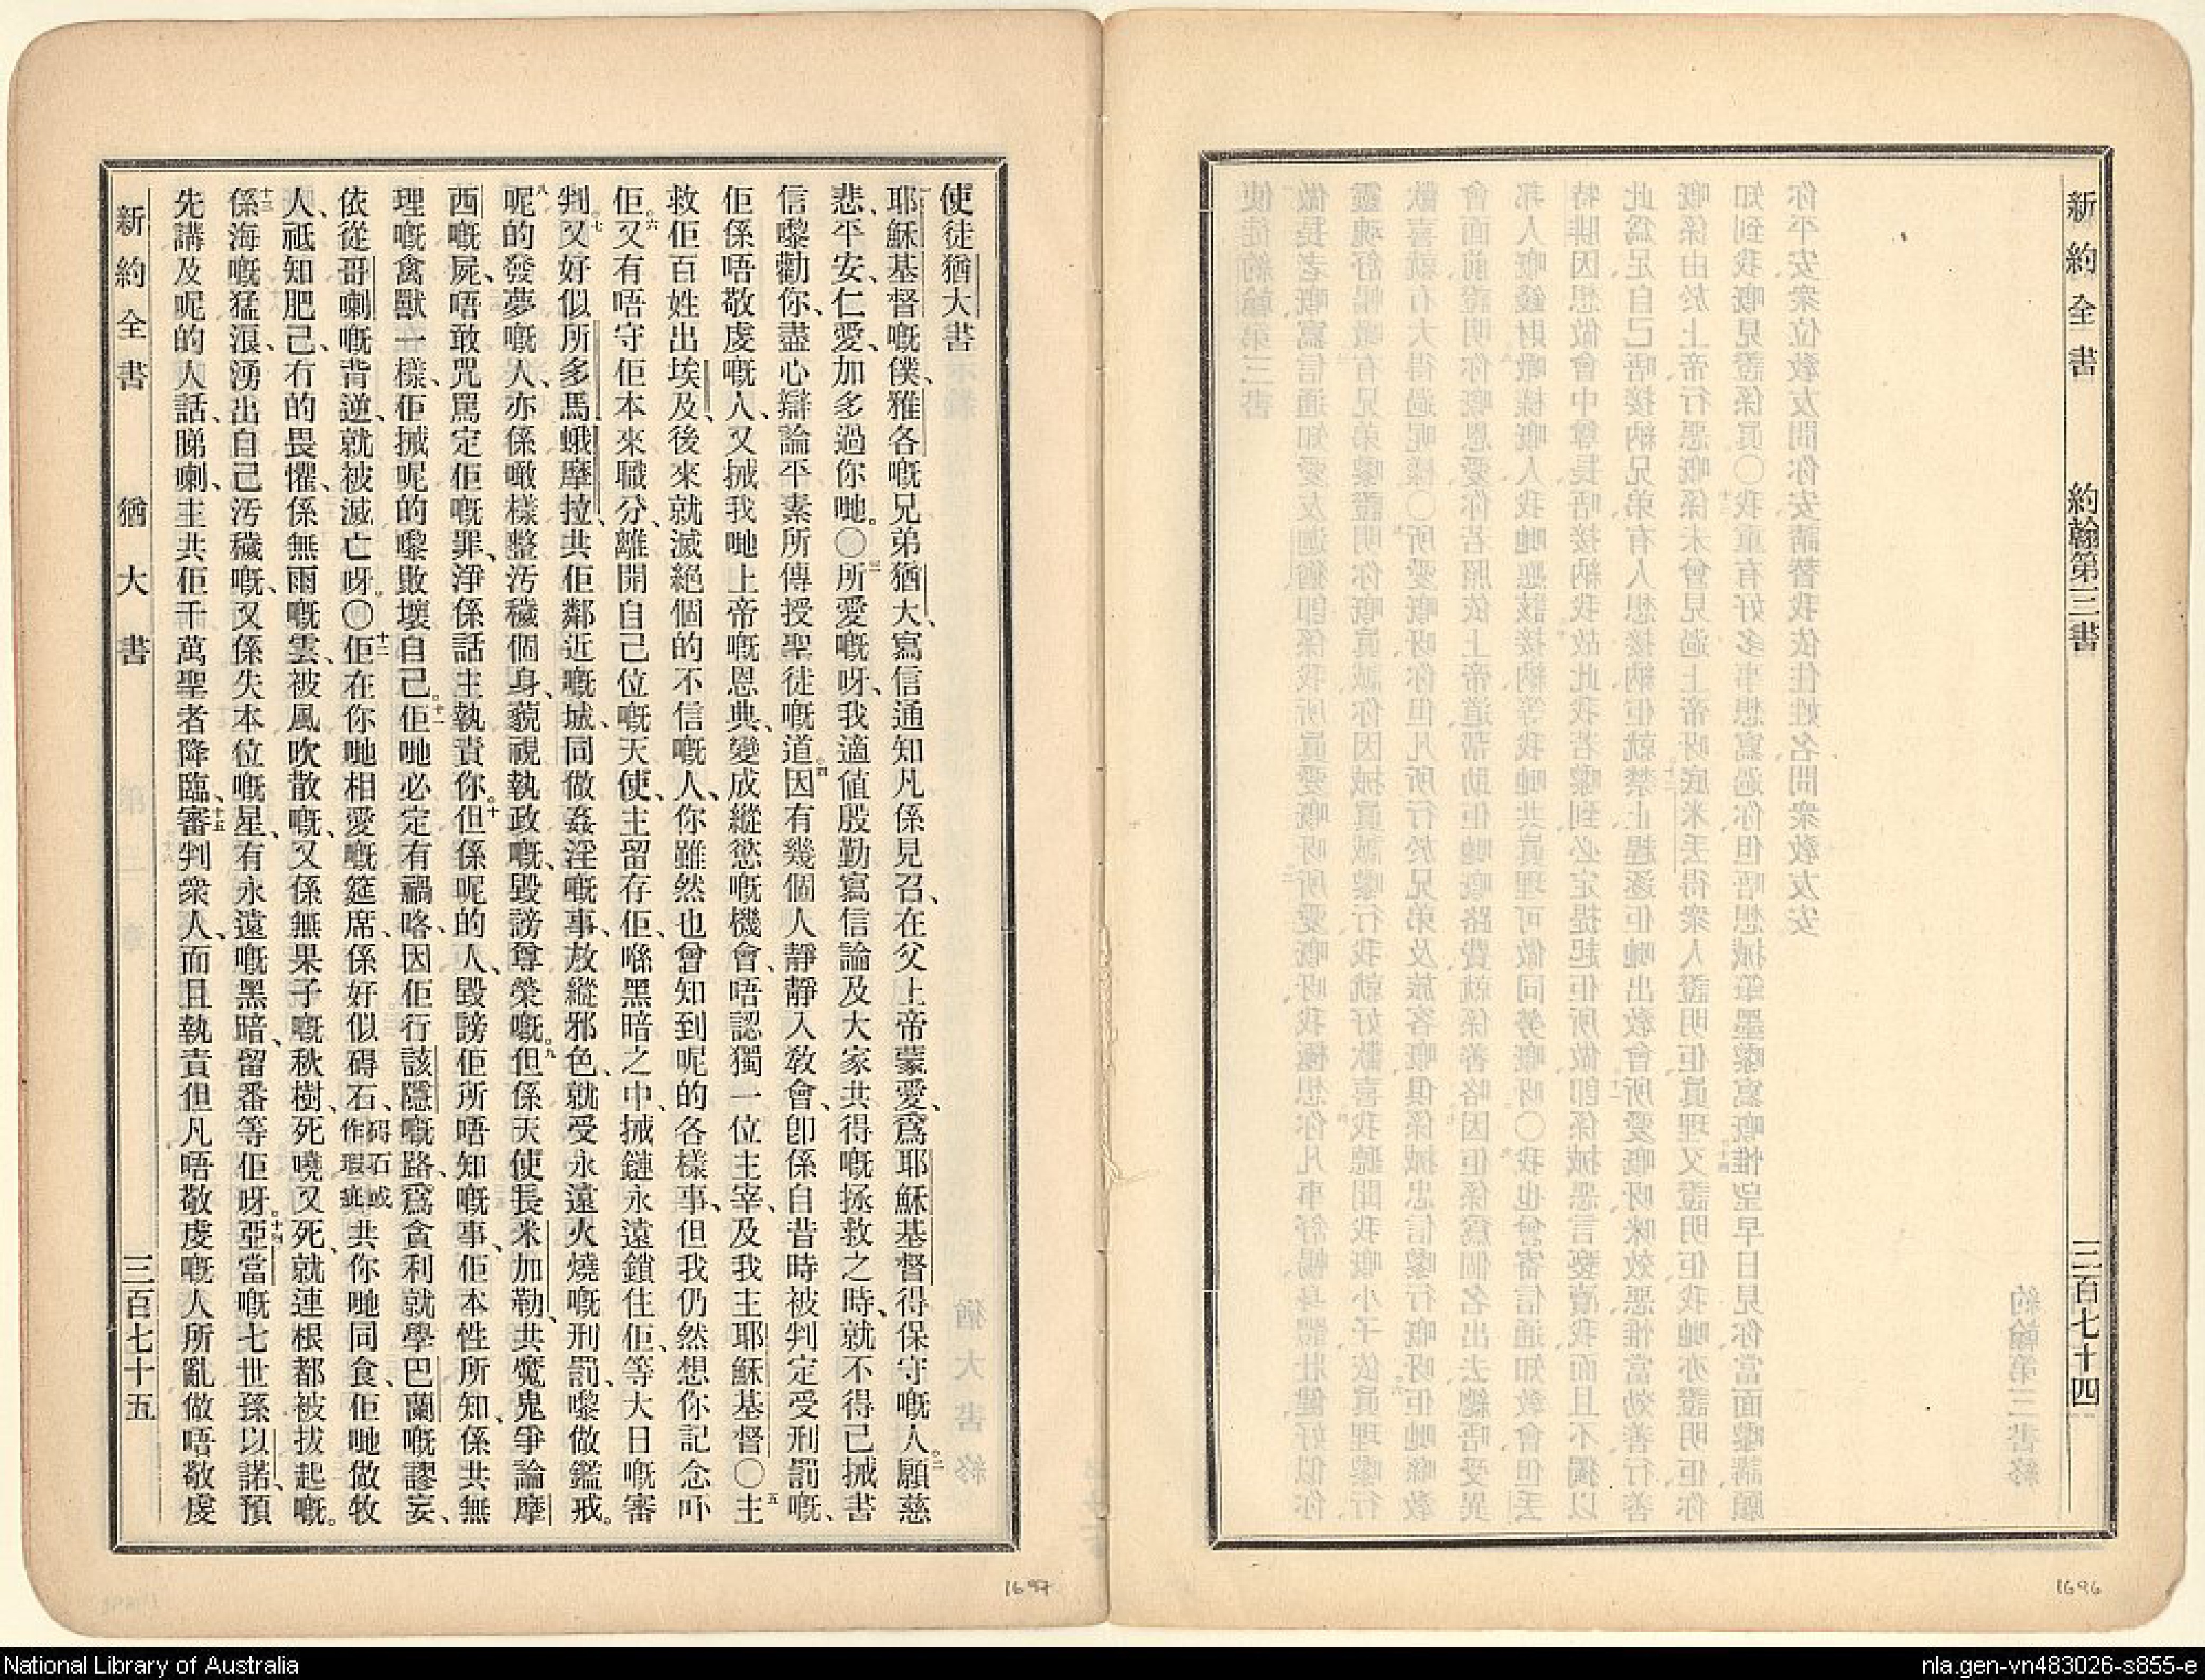 新約全書 約翰第三書 三百七十四
使徒猶大書
一耶穌基督嘅僕、雅各嘅兄弟猶大、寫信通知凡係見召、在父上帝蒙愛、爲耶穌基督得保守嘅人。二願慈
悲、平安、仁愛、加多過你哋。〇三所愛嘅呀、我適値殷勤寫信論及大家共得嘅拯救之時、就不得已搣書
信嚟勸你、盡心辯論平素所傳授聖徒嘅道。四因有幾個人靜靜入教會、卽係自昔時被判定受刑罰嘅、
佢係唔敬虔嘅人、又搣我哋上帝嘅恩典、變成縱慾嘅機會、唔認獨一位主宰、及我主耶穌基督〇五主
救佢百姓出埃及、後來就滅絕個的不信嘅人、你雖然也曾知到呢的各樣事、但我仍然想你記念吓
佢。六又有唔守佢本來職分、離開自己位嘅天使、主留存佢、喺黑暗之中、搣鏈永遠鎖住佢、等大日嘅審
判。七又好似所多馬蛾摩拉、共佢鄰近嘅城、同做姦淫嘅事、放縱邪色、就受永遠火燒嘅刑罰、嚟做鑑戒。
八呢的發夢嘅人、亦係噉樣整汚穢個身、藐視執政嘅、毀謗尊榮嘅。九但係天使長米加勒、共魔鬼爭論摩
西嘅屍、唔敢咒罵定佢嘅罪、淨係話主執責你。十但係呢的人、毀謗佢所唔知嘅事、佢本性所知、係共無
理嘅禽獸一樣、佢搣呢的嚟敗壞自己。十一佢哋必定有禍咯、因佢行該隱嘅路、爲貪利就學巴蘭嘅謬妄、
依從哥喇嘅背逆、就被滅亡呀。〇十二佢在你哋相愛嘅筵席、係好似碍石、碍石或作瑕疵共你哋同食、佢哋做牧
人、祗知肥己、冇的畏懼、係無雨嘅雲、被風吹散嘅、又係無果子嘅秋樹、死嘵又死、就連根都被拔起嘅。
十三係海嘅猛浪、湧出自己汚穢嘅、又係失本位嘅星、有永遠嘅黑暗、留番等佢呀。十四亞當嘅七世孫以諾、預
先講及呢的人話、睇喇、主共佢千萬聖者降臨、十五審判衆人、而且執責但凡唔敬虔嘅人所亂做唔敬虔
新約全書 猶大書 三百七十五
1697
1696
National Library of Australia
nla.gen-vn483026-s855-e